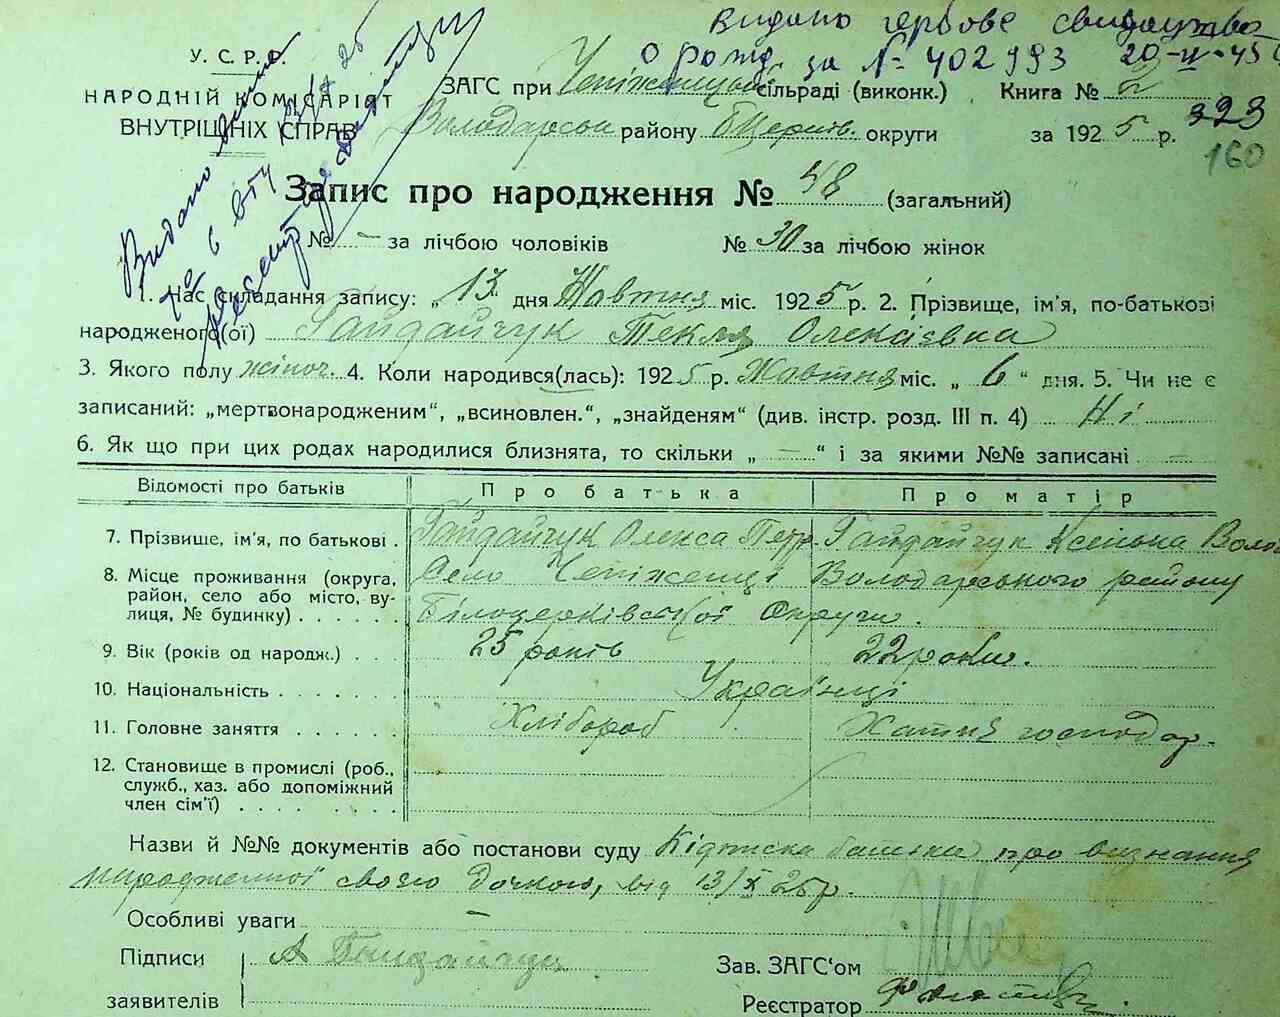 Видано гербове свидоцтво
о рожд. за № 402993 20-II-45
У. С. Р. Р.
НАРОДНІЙ КОМІСАРІЯТ
ВНУТРІШНІХ СПРАВ
ЗАГС при сільраді (виконк.) Книга № 2
Володарськ району Б Церків. округи за 1925 р. 323
160
Видано
Запис про народження № 48 (загальний)
№ — за лічбою чоловіків № 30 за лічбою жінок
1. Час складання запису: „13 дня Жовтня міс. 1925 р. 2. Прізвище, ім'я, по-батькові
народженого(ої) Гайдайчук Текля Олексіевна
3. Якого полу жіноч. 4. Коли народився(лась): 1925 р. Жовтня міс. „ 6 “ дня. 5. Чи не є
записаний: „мертвонародженим“, „всиновлен.“, „знайденям“ (див. інстр. розд. III п. 4) Ні
6. Як що при цих родах народилися близнята, то скільки „ — “ і за якими №№ записані —
Відомості про батьків Про батька Про матір
7. Прізвище, ім'я, по батькові . Гайдайчук Олекса Гайдайчук Ксенька
8. Місце проживання (округа, Село Володарського району
район, село або місто, ву-
лиця, № будинку) . . . . . . Білоцерківської Округи.
9. Вік (років од народж.) . . . 25 років 22 роки.
10. Національність . . . . . . . Українці
11. Головне заняття . . . . . . Хлібороб Хатня господар.
12. Становище в промислі (роб.,
служб., хаз. або допоміжний
член сім'ї) . . . . . . . . .
Назви й №№ документів або постанови суду Підписка батька про визнання
народженної своєю дочкою, від 13/X 25 р.
Особливі уваги —
Підписи А Гайдайчук Зав. ЗАГС‘ом
заявителів Реєстратор